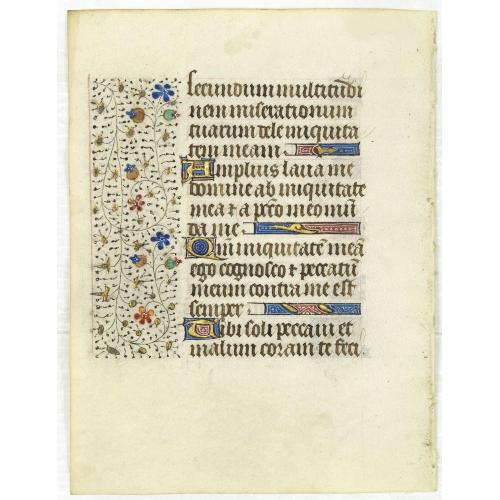 secundum multitudi
nem miserationum
tuarum dele iniquita
tem meam
Amplius laua me
domine ab iniquitate
mea et a pcc̄o meo mū
da me
Qm̄ iniquitatē meā
ego cognosco et peccatū
meum contra me est
semper
Tibi soli peccaui et
malum coram te feci